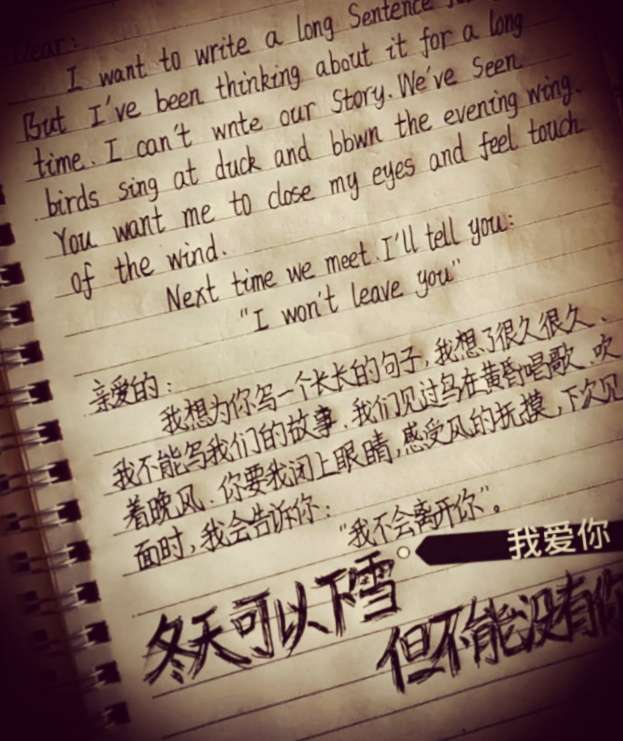 Dear:
I want to write a long Sentence
But I've been thinking about it for a long
time. I can't wnte our Story. We've Seen
birds sing at duck and bbwn the evening wing.
You want me to close my eyes and feel touch
of the wind.
Next time we meet. I'll tell you:
"I won't leave you"
亲爱的:
我想为你写一个长长的句子,我想了很久很久、
我不能写我们的故事.我们见过鸟在黄昏唱歌.吹
着晚风.你要我闭上眼睛,感受风的抚摸,下次见
面时,我会告诉你:
"我不会离开你"。
我爱你
冬天可以下雪
但不能没有你